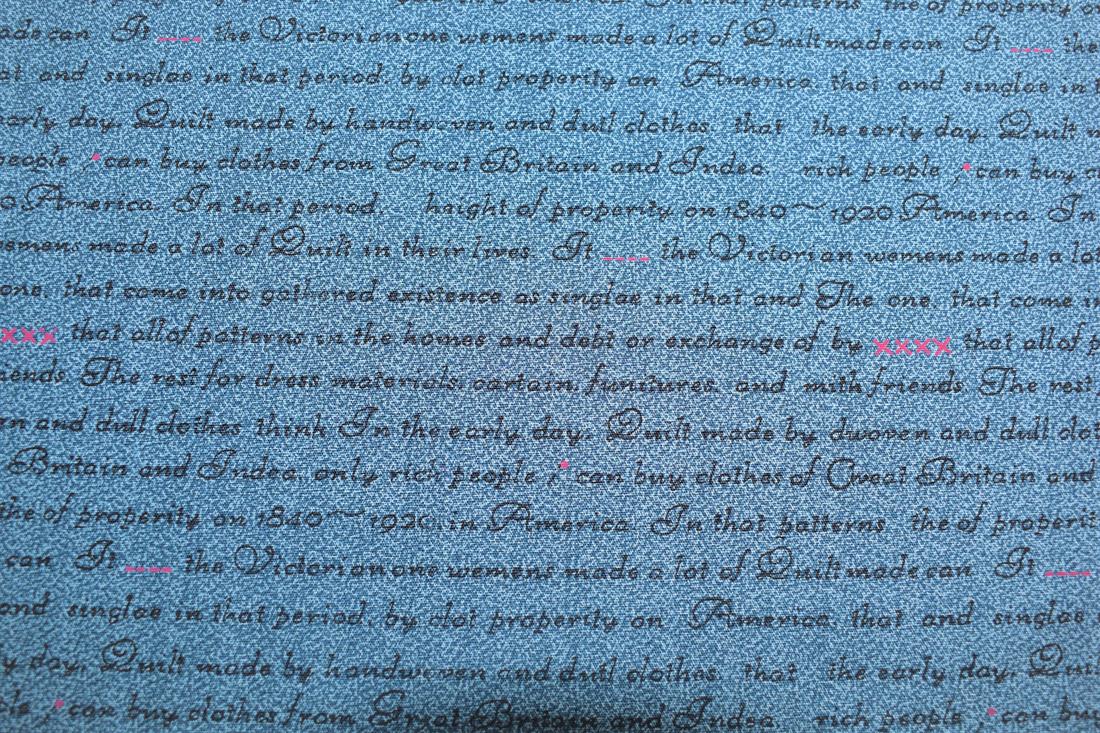 made can It ---- the Victorian one wemens made a lot of Quilt made can It ---- the
at and singlae in that period. by clot properity on America. that and singlae in t
early day. Quilt made by handwoven and dull clothes. that the early day. Quilt
people , can buy clothes from Great Britain and Indea. rich people , can buy
America. In that period. haight of properity on 1840~1920 America. In
wemens made a lot of Quilt in their lives. It ---- the Victorian wemens made a lot
one. that come into gathered existence as singlae in that and The one. that come
xxx that all of patterns in the homes and debt or exchange of by xxxx that all of p
iends. The rest for dress materials. cartain. funitures. and mith friends. The rest
n and dull clothes think In the early day. Quilt made by dwoven and dull clot
Britain and Indea. only rich people , can buy clothes of Great Britain and
the of properity on 1840~1920. in America. In that patterns the of properit
can It ---- the Victorian one wemens made a lot of Quilt made can It ----
and singlae in that period. by clot properity on America. that and singlae
y day. Quilt made by handwoven and dull clothes. that the early day. Quil
ple , can buy clothes from Great Britain and Indea. rich people , can buy